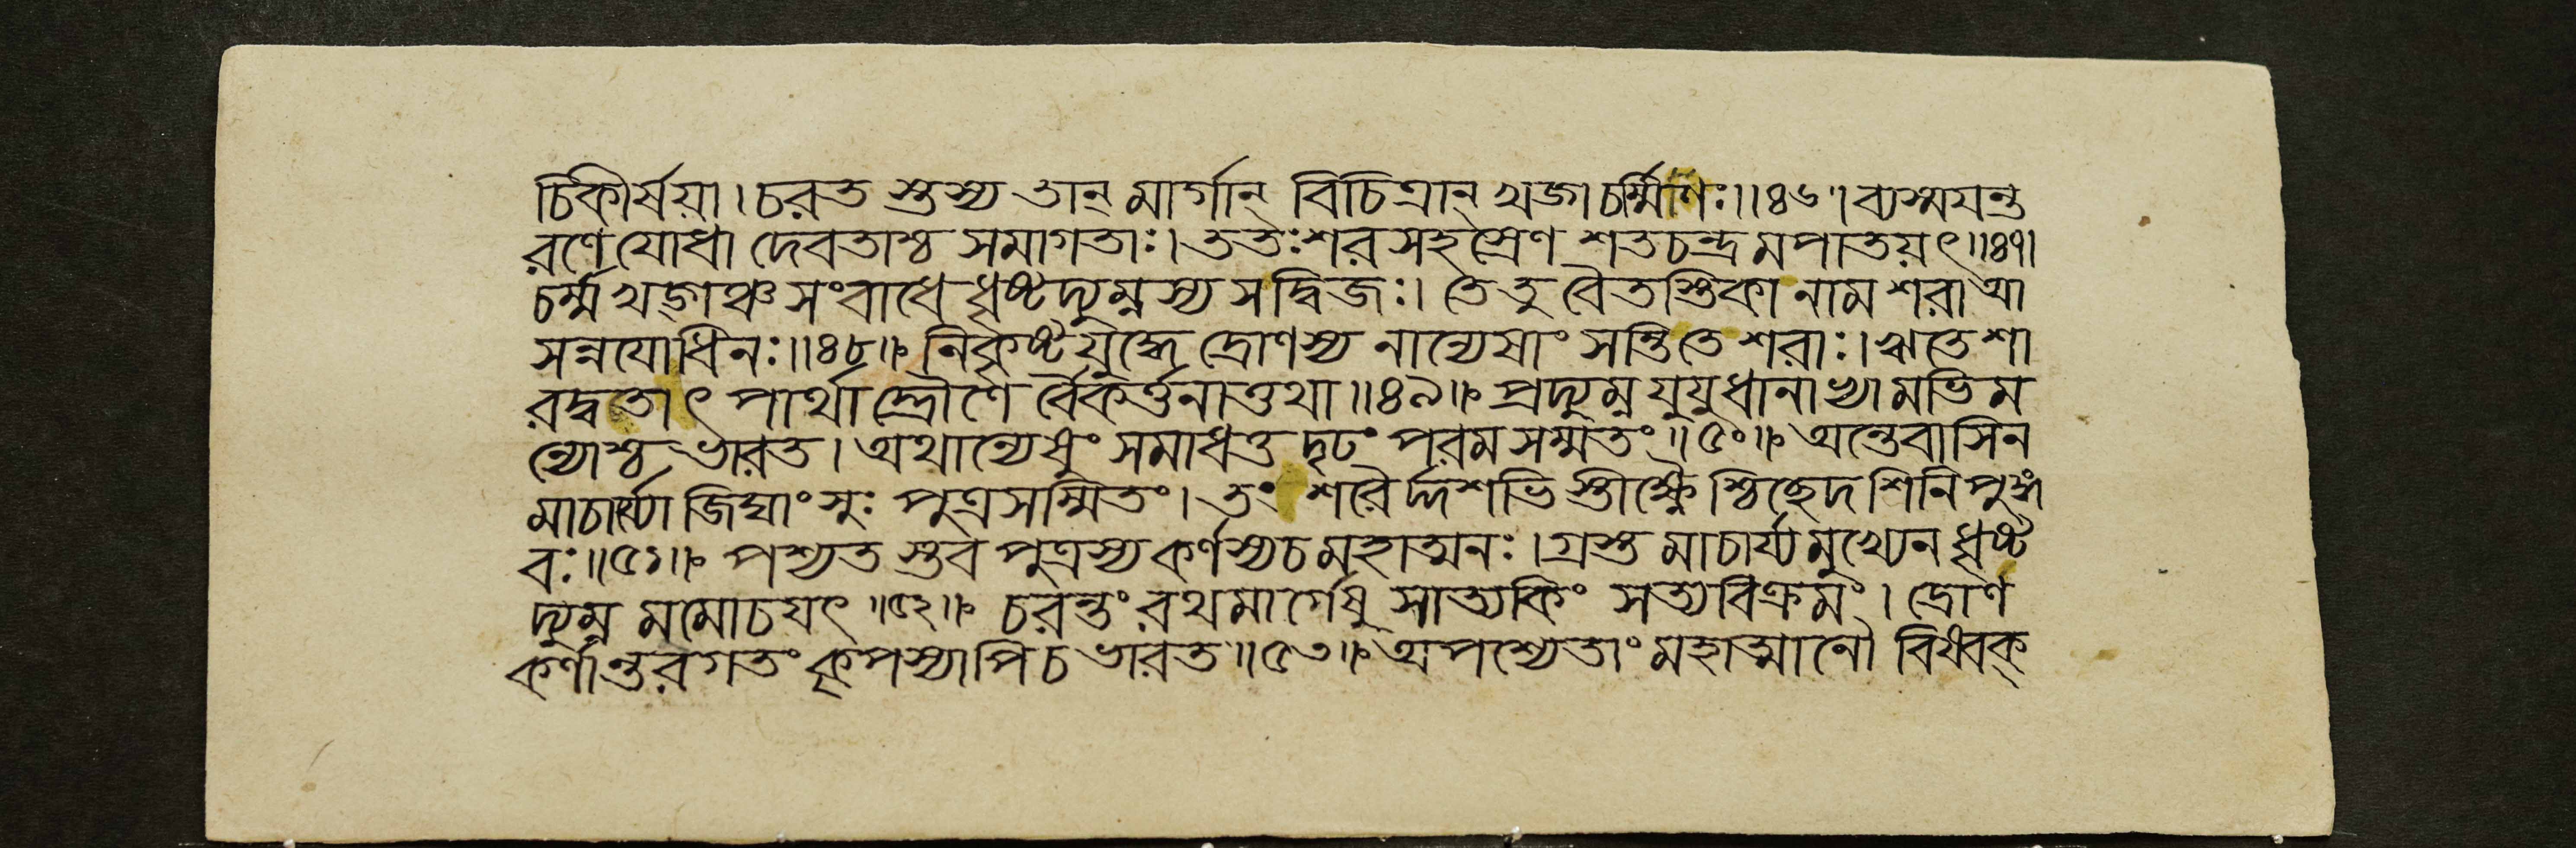 চিকীর্ষয়া। চরত স্তস্য তান্ মার্গান্ বিচিত্রান্ খড়্গচর্ম্মিণঃ॥৪৬॥ ব্যস্ময়ন্ত
রণে যোধা দেবতাশ্চ সমাগতাঃ। ততঃ শরসহস্রেণ শতচন্দ্রমপাতয়ৎ॥৪৭।
চর্ম্ম খড়্গঞ্চ সংবাধে ধৃষ্টদ্যুম্নস্য স দ্বিজঃ। তে তু বৈতস্তিকা নাম শরা আ
সন্নযোধিনঃ॥৪৮॥ নিকৃষ্টযুদ্ধে দ্রোণস্য নান্যেষাং সন্তি তে শরাঃ। ঋতে শা
রদ্বতাৎ পার্থা দ্রৌণে র্বৈকর্ত্তনাত্তথা॥৪৯॥ প্রদ্যুম্ন যুযুধানাভ্যামভিম
ন্যোশ্চ ভারত। অথান্যেষুং সমাধত্ত দৃঢং পরমসম্মতং॥৫০॥ অন্তেবাসিন
মাচার্য্যো জিঘাংসুঃ পুত্রসম্মিতং। তং শরৈর্দ্দশভি স্তীক্ষ্ণৈ শ্চিচ্ছেদ শিনিপুঙ্গ
বঃ॥৫১॥ পশ্যত স্তব পুত্রস্য কর্ণস্য চ মহাত্মনঃ। গ্রস্ত মাচার্য্যমুখ্যেন ধৃষ্ট
দ্যুম্ন মমোচয়ৎ॥৫২॥ চরন্তং রথমার্গেষু সাত্যকিং সত্যবিক্রমং। দ্রোণ
কর্ণান্তরগতং কৃপস্যাপি চ ভারত॥৫৩॥ অপশ্যেতাং মহাত্মানৌ বিষ্বক্